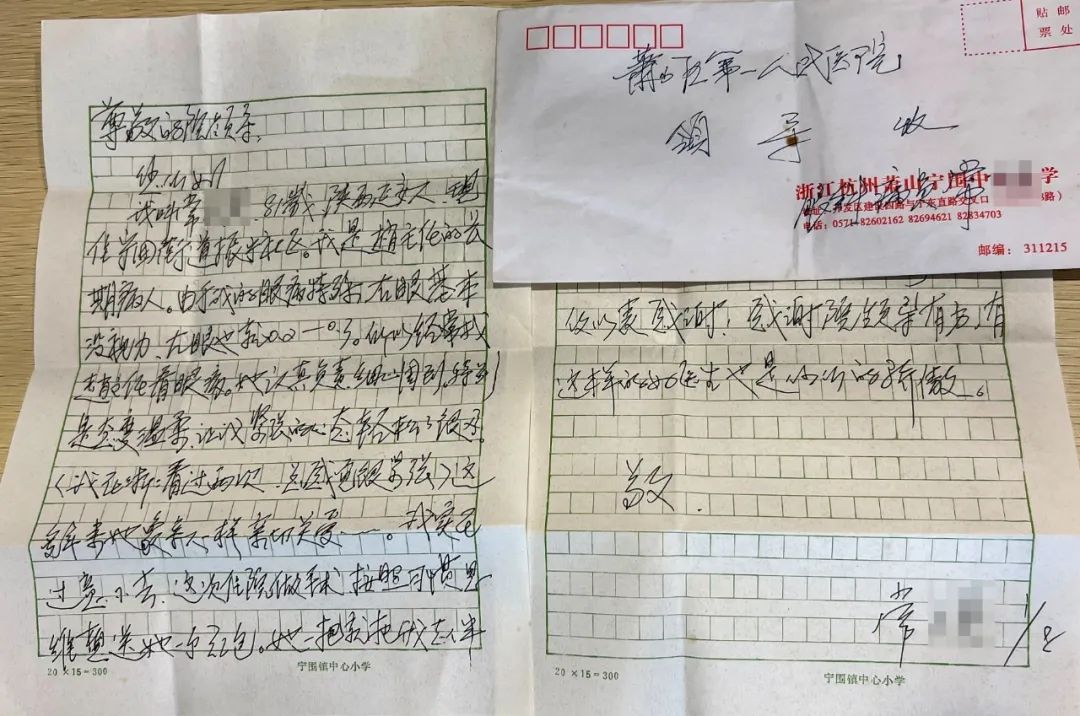 尊敬的院领导:
您们好!
我叫常 81岁 陕西延安人,现
住宁围街道振宁社区。我是赵主任的长
期病人。由于我的眼病特殊,右眼基本
没视力,左眼也就0.02一0.3。所以经常找
赵主任看眼病。她认真负责细心周到,特别
是态度温柔,让我紧张的心态轻松了很多。
看过两次,总感觉很紧张)这
多年来她象亲人一样亲切关爱……。我实在
过意不去,这次住院做手术,按照习惯思
维想送她一个红包。她一把紧抱我去人半
20×15=300
宁围镇中心小学
贴邮
票处
萧山区第一人民医院
领导 收
浙江杭州萧山宁围中 学
开发区建设四路与宁东直路交叉口 路)
电话:0571-82602162 82694621 82834703
邮编:311215
仅以表感谢!感谢院领导有方,有
这样的好医生也是你们的骄傲。
敬
常 1/2
20×15=300
宁围镇中心小学